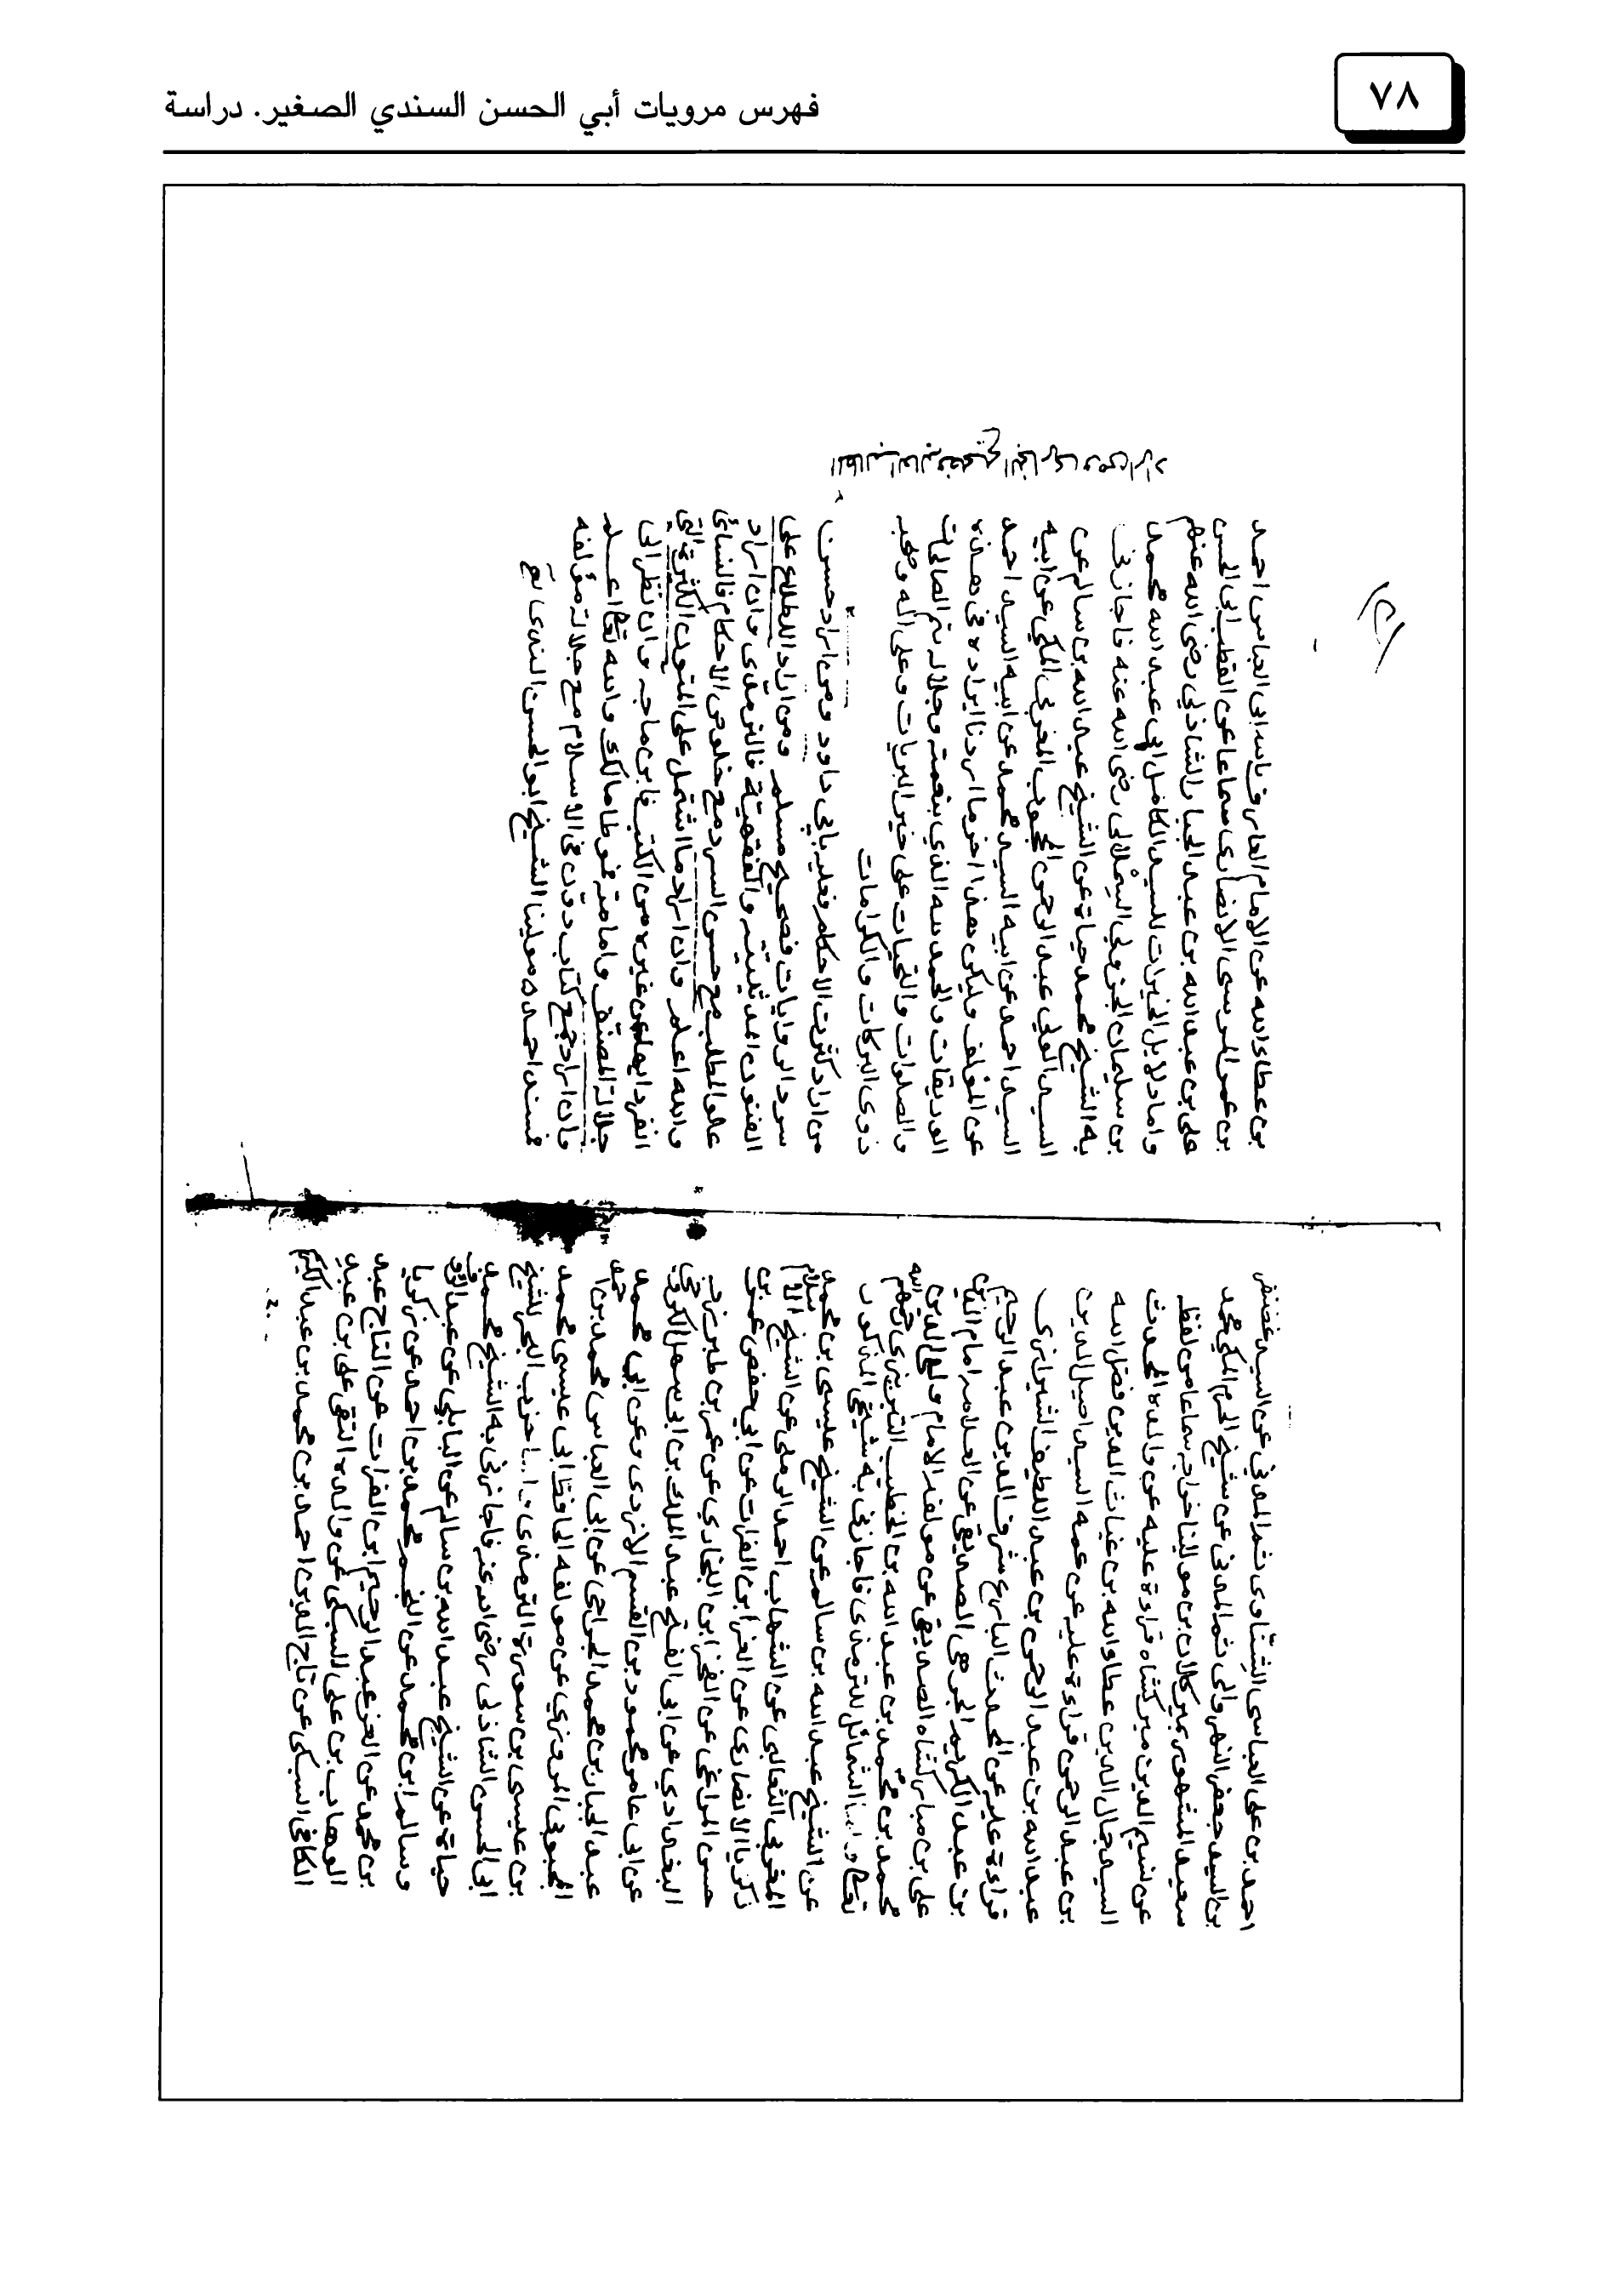 ٧٨
فهرس مرويات أبي الحسن السندي الصغير. دراسة
احمد بن على العباسى الشناوى ثم المدنى عن السيد غضنفر
بن السيد جعفر النهروالى ثم المدنى عن شيخ الحرم المكى محمد
سعيد المشهور بمير كلان بن مولينا خواجه سماعا من لفظ
عن نسيم الدين ميركشاه قراءة عليه عن والده المحدث
السيد جمال الدين عطاء الله بن غياث الدين فضل الله
بن عبد الرحمن قراءة عليه عن عمه السيد اصيل الدين
عبد الله بن عبد الرحمن بن عبد اللطيف الشيرازى
قراءة عليه عن المحدث البارع شرف الدين عبد الرحيم
بن عبد الكريم الجرهى الصديقى عن العلامه امام الدين
على بن مباركشاه الصديقى عن مولفه الامام ولى الدين
محمد بن عبد الله بن الخطيب التبريزى رحمهم الله
تعالى واما الشمائل للترمذى فاجازنى به شيخى المذكور
عن الشيخ عبد الله بن سالم عن الشيخ عيسى بن محمد
المغربى الثعالبى عن الشهاب احمد الرملى عن الشيخ الاسلام
زكريا الانصارى عن العز ابن الفرات عن ابي حفص عمر بن
حسن المراغى عن الفخر ابن البخاري عن عمر بن طبرزد
البغدادي عن ابى الفتح عبد الملك بن ابى سهل الكروخى
عن ابى عامر محمود بن القسم الازدى وعن ابي محمد
عبد الجبار بن محمد الجراحى عن ابى العباس محمد بن احمد
المحبوبى المروزي عن مولفه الحافظ ابى عيسى محمد
بن عيسى بن سورة الترمذى واما حزب البحر للشيخ
ابى الحسن الشاذلى رضى الله عنه فاجازنى به الشيخ محمد
حياة عن الشيخ عبد الله بن سالم عن البابلي عن عبد الرؤف
وسالم ابن محمد عن النجم محمد بن احمد عن زكريا
بن محمد عن العز عبد الرحيم ابن الفرات عن التاج عبد
الوهاب بن على السبكى عن والده التقى على بن عبد
الكافى السبكى عن تاج الدين احمد بن محمد بن عبد الكريم
بن عطاء الله عن الامام العارف بالله ابى العباس احمد
بن عمر المرسى الانصارى سماعا عن القطب ابى الحسن
على بن عبد الله بن عبد الجبار الشاذلي رضى الله عنهم
واما دلايل الخيرات للسيد الكامل ابى عبد الله محمد
بن سليمان الجزولى السملالى رضى الله عنه فاجازنى
به الشيخ محمد حياة عن الشيخ عبد الله بن سالم عن
السيد الولي عبد الرحمن المحجوب المغربى المكي عن ابيه
السيد احمد عن ابيه السيد محمد عن ابيه السيد احمد
عن المؤلف وليكن هذا اخر ما اردنا ايراده في هذه
الوريقات والحمد لله الذي بنعمته وجلاله تتم الصالحات
والصلوات والتحيات على خير البريات وعلى اله وصحبه
ذوى البركات والكرامات
من اراد كثرت الاحكام فعليه بابي داود ومن اراد حسن
سرد الروايات فصحيح مسلم ومن اراد الاطلاع على
الفنون الحديثية والفقهية فالترمذى وان اراد
علو المطلب مع حسن السرد مع خلوص الاحكام فالنسائى
والله اعلم وان اراد ما اشتمل على المتون الكثيرة التى
انفرد بها عن غيره من الكتب فابن ماجه وان نظر الى
جلالة المصنف وامامته فموطا مالك والله تعالى اعلم
وان اراد جمع كتاب دون فى الاسلام مع جلالة مؤلفه
فمسند احمد مولينا الشيخ ابو الحسن السندى